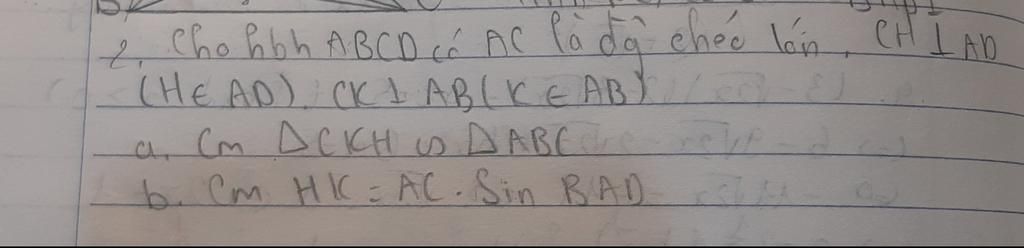 2. Cho hbh ABCD có AC là đg chéo lớn. CH ⊥ AD
(H ∈ AD). CK ⊥ AB (K ∈ AB)
a. Cm △CKH ∽ △ABC
b. Cm HK = AC . Sin BAD